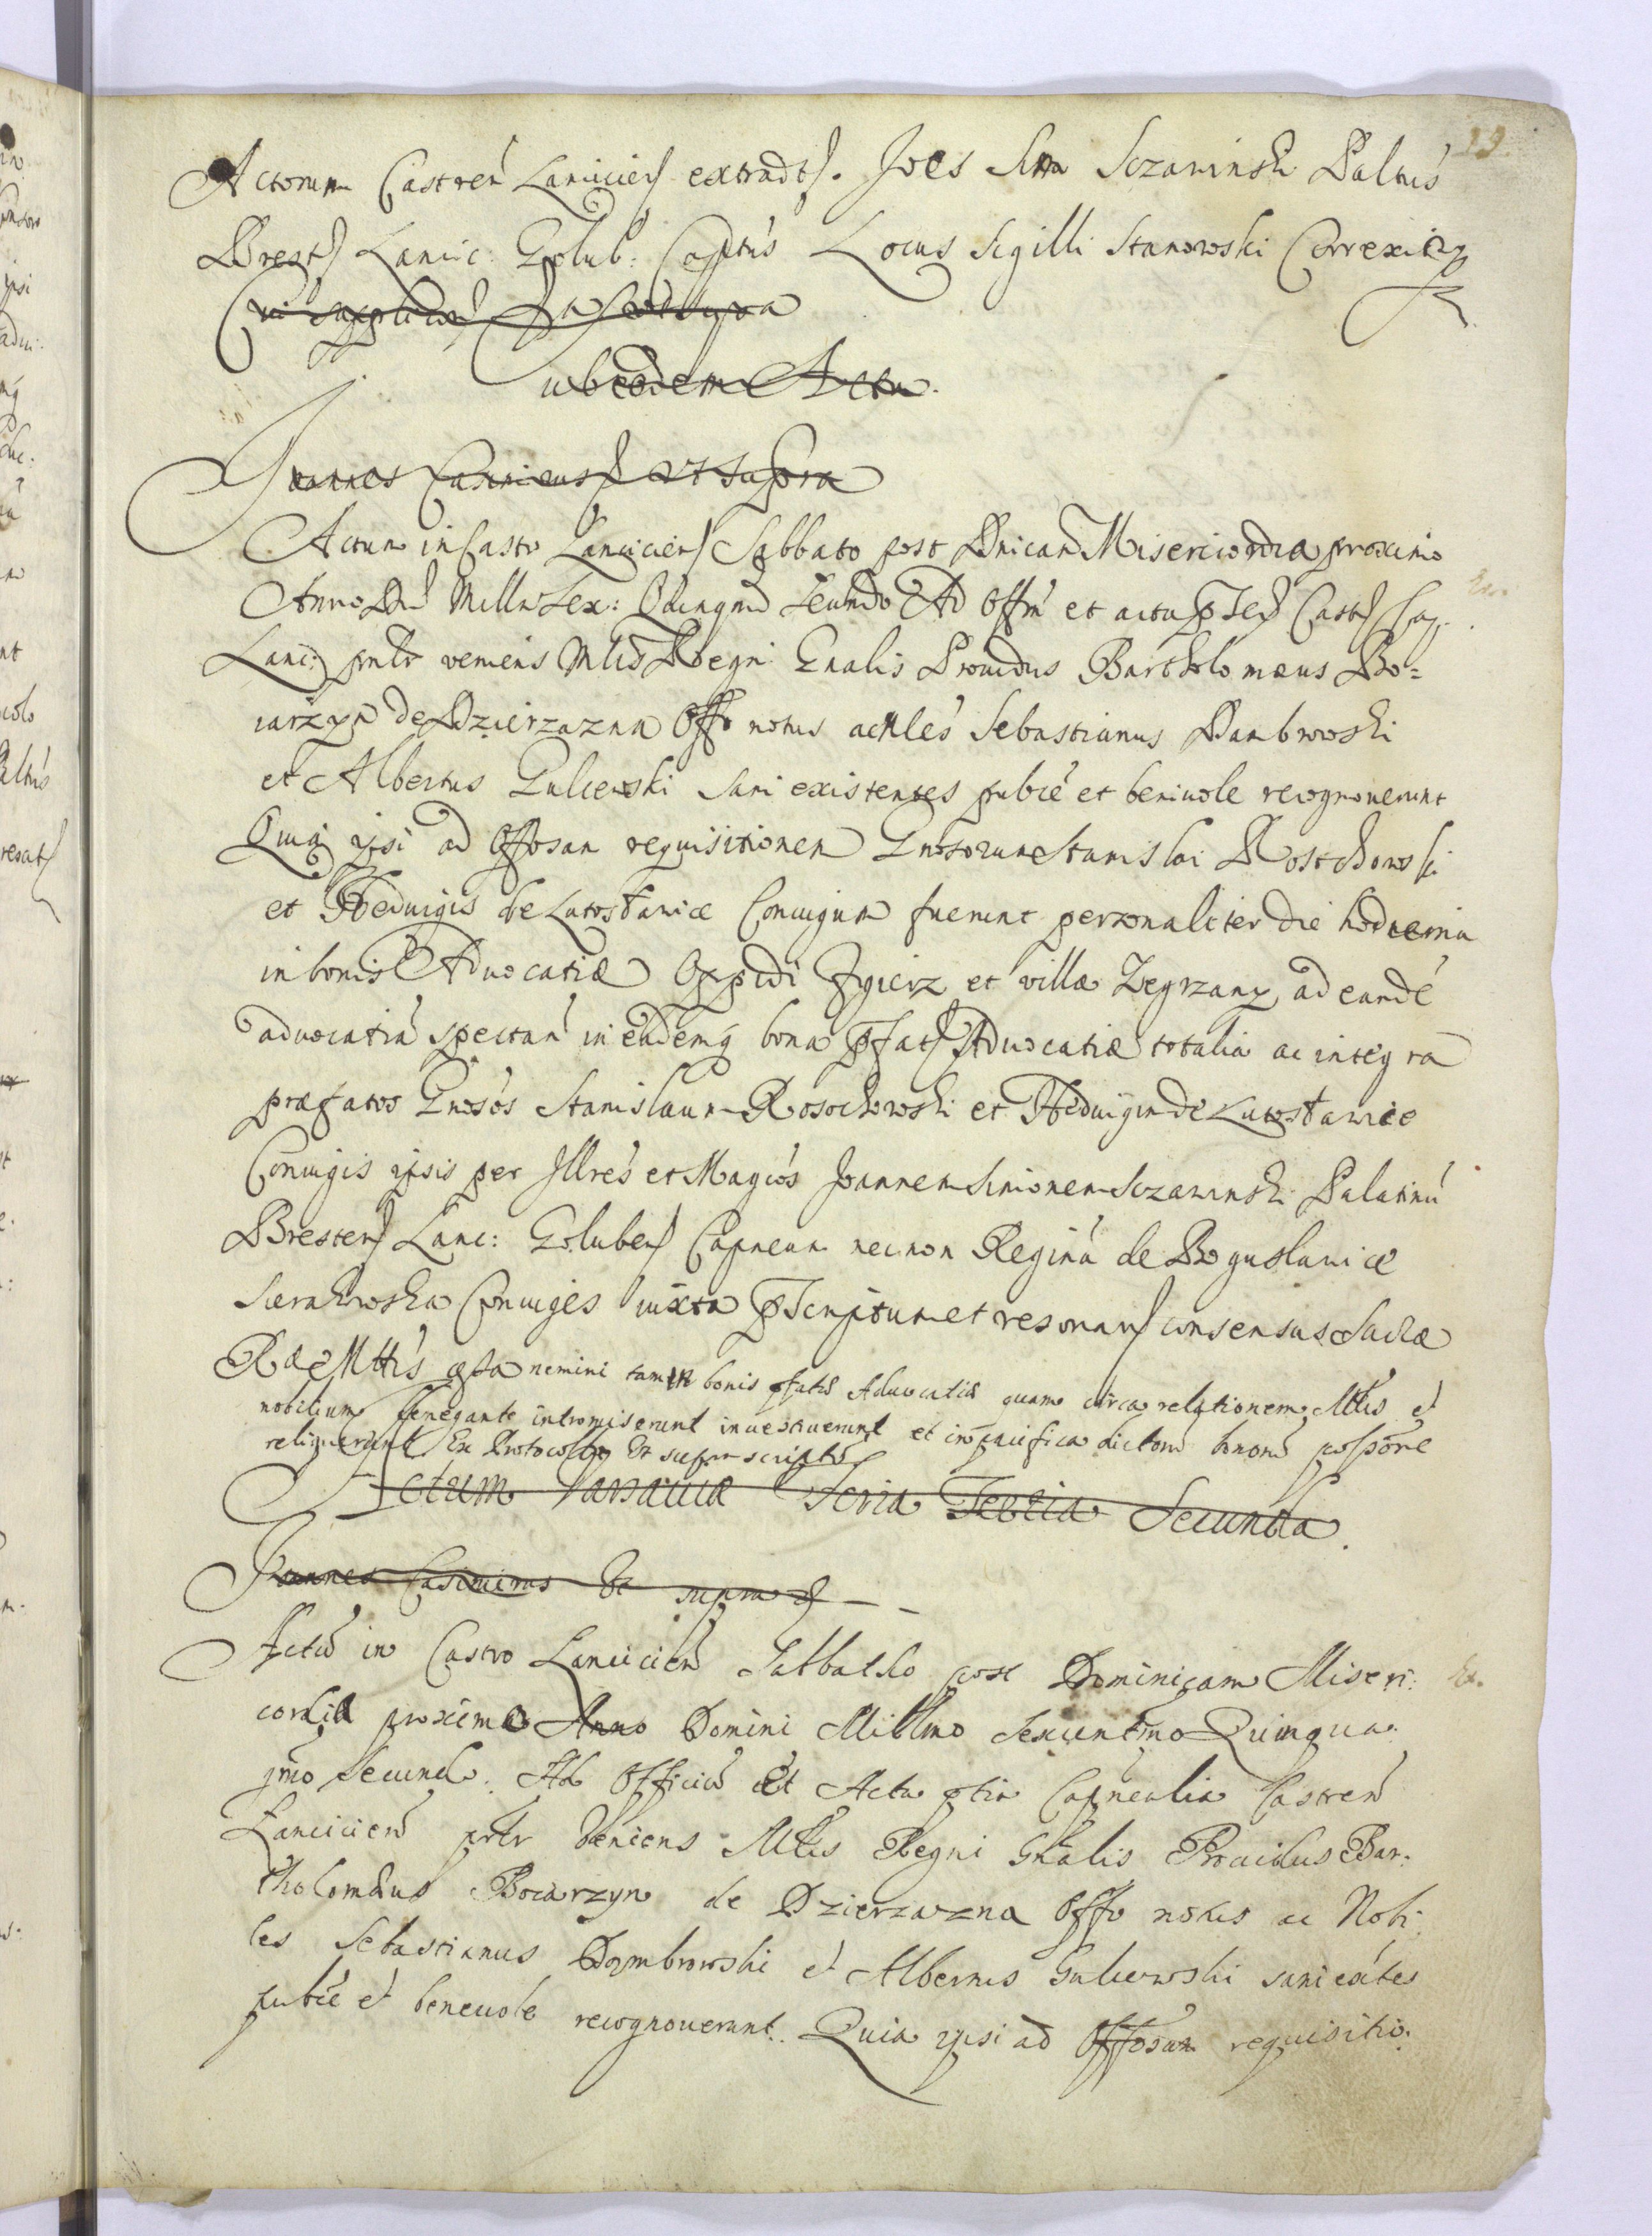 19
Actorum Castren Lanicien extradt. Joes Sim Sczawinski Paltus
Brest Lancic: Golub: Captus Locus Sigilli Stanowski Correxit
ut supra
ub eodem Actu.
Joannes Casimirus ut supra
Actum in Castro Lancicien Sabbato post Dnicam Misericordia proximo
Anno Dni Millo Sex: Quinqmo Scundo Ad Offm et acta pSen Castr Cap.
Lanc: prsltr veniens Mlis Regni Gnalis Providus Bartholomæus Bo-
iarzyn de Dzierzazna Offo notus ac Nles Sebastianus Dambrowski
et Albertus Gulcewski sani existentes publce et benivole recognoverunt
Quia ypsi ad Offosam requisitionem Gnosorum Stanislai Rosochowski
et Hedvigis de Lutosławice Conjugum fuerunt personaliter die hodierna
in bonis Advocatiæ Oppidi Zgierz et villæ Zegrzany ad eande
advocatia spectan in eademq bona pfat Advocatiæ totalia ac integra
præfatos Gnosos Stanislaum Rosochowski et Hedvigim de Lutosławice
Conjugis ypsis per Illres et Magcos Joannem Simonem Sczawinski Palatinu
Bresten Lanc: Goluben Capneum necnon Regina de Boguslavice
Sierakowska Conjuges iuxta pScriptum et resonan consensus Sacræ
Ræ Mttis qsta nemini tam in bonis pfatis Advocatiæ quam circa relationem Mlis et
nobilium denegante intromiserunt investiverunt et in pacifica dictorum bonorum possone
reliquerunt Ex Protocollo ut supra scripto
Actum Varsaviæ Feria Tertia Secunda.
Joannes Casimirus ut supra
Actu in Castro Lancicien Sabbatho post Dominicam Miseri:
cordia proximo Anno Domini Millmo Sexcentmo Quinqua:
gmo Secundo. Ad Officiu Et Acta ptia Capnealia Castren
Lancicien prltr Veniens Mlis Regni Gnalis Providus Bar:
tholomæus Bocarzyn de Dzierzazna Offo notus ac Nobi:
les Sebastianus Dąmbrowski et Albertus Gulcewski sani exñtes
publce et benevole recognoverunt. Quia ypsi ad Offosam requisitio: